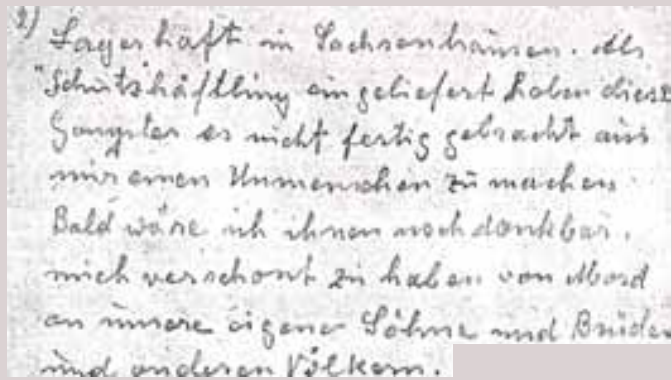 2)
Lagerhaft in Sachsenhausen. Als
"Schutz"häftling eingeliefert haben diese
Gangster es nicht fertig gebracht aus
mir einen Unmenschen zu machen.
Bald wäre ich ihnen noch dankbar,
mich verschont zu haben von Mord
an unsere eigene Söhne und Brüder
und anderen Völkern.